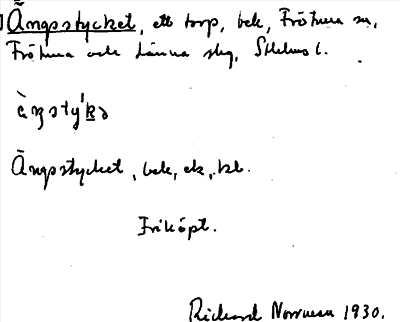 Ängsstycket, ett torp, bek, Frötuna sn,
Frötuna och Länna skg, Sthlms l.
Ängsstycket, bek, ek, kb.
Friköpt.
Rickard Norrman 1930.